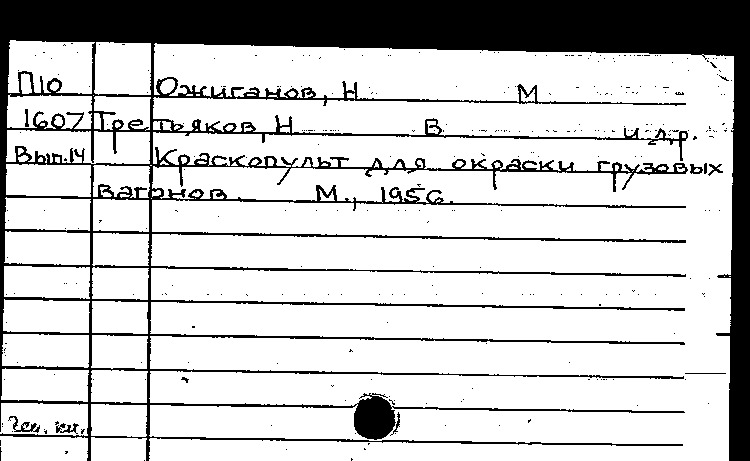 П10 Ожиганов, Н М
1607 Третьяков, Н В и др.
Вып.14 Краскопульт для окраски грузовых
вагонов. М., 1956.